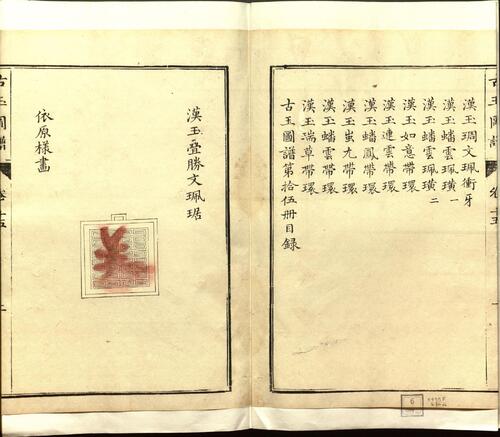 漢玉琱文珮衝牙
漢玉蟠雲珮璜一
漢玉蟠雲珮璜二
漢玉如意帶環
漢玉連雲帶環
漢玉蟠鳳帶環
漢玉蚩尤帶環
漢玉蟠雲帶環
漢玉瑞草帶環
古玉圖譜第拾伍冊目錄
漢玉疊勝文珮琚
依原樣畫
古玉圖譜
卷十五
6